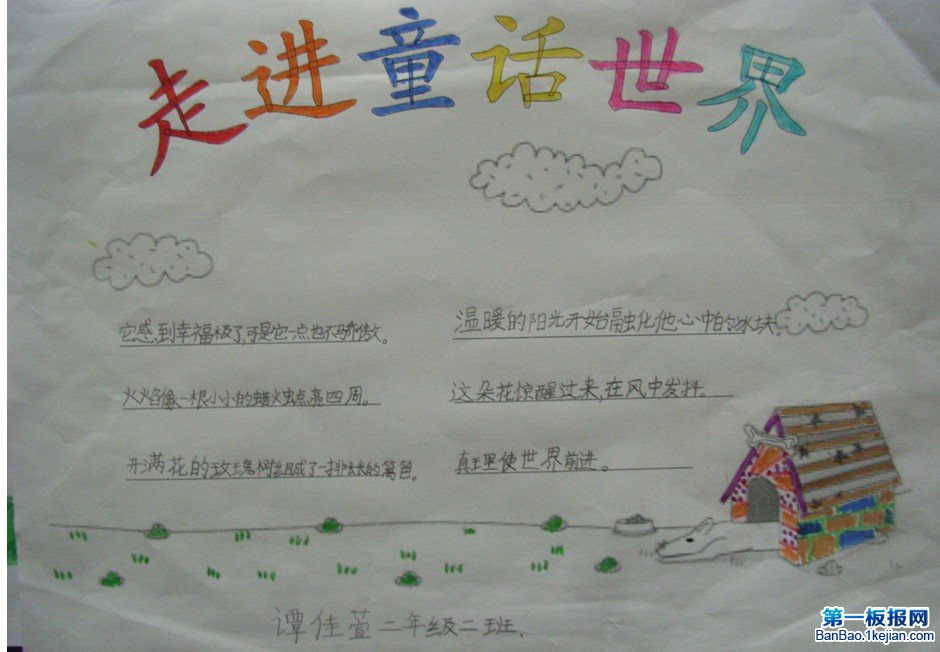 走进童话世界
它感到幸福极了,可是它一点也不骄傲。
温暖的阳光开始融化他心中的冰块。
火焰像一根小小的蜡烛点亮四周。
这朵花惊醒过来,在风中发抖。
开满花的玫瑰树组成了一排大大的篱笆。
真理使世界前进。
谭佳萱二年级二班、
第一板报网
BanBao.1kejian.com